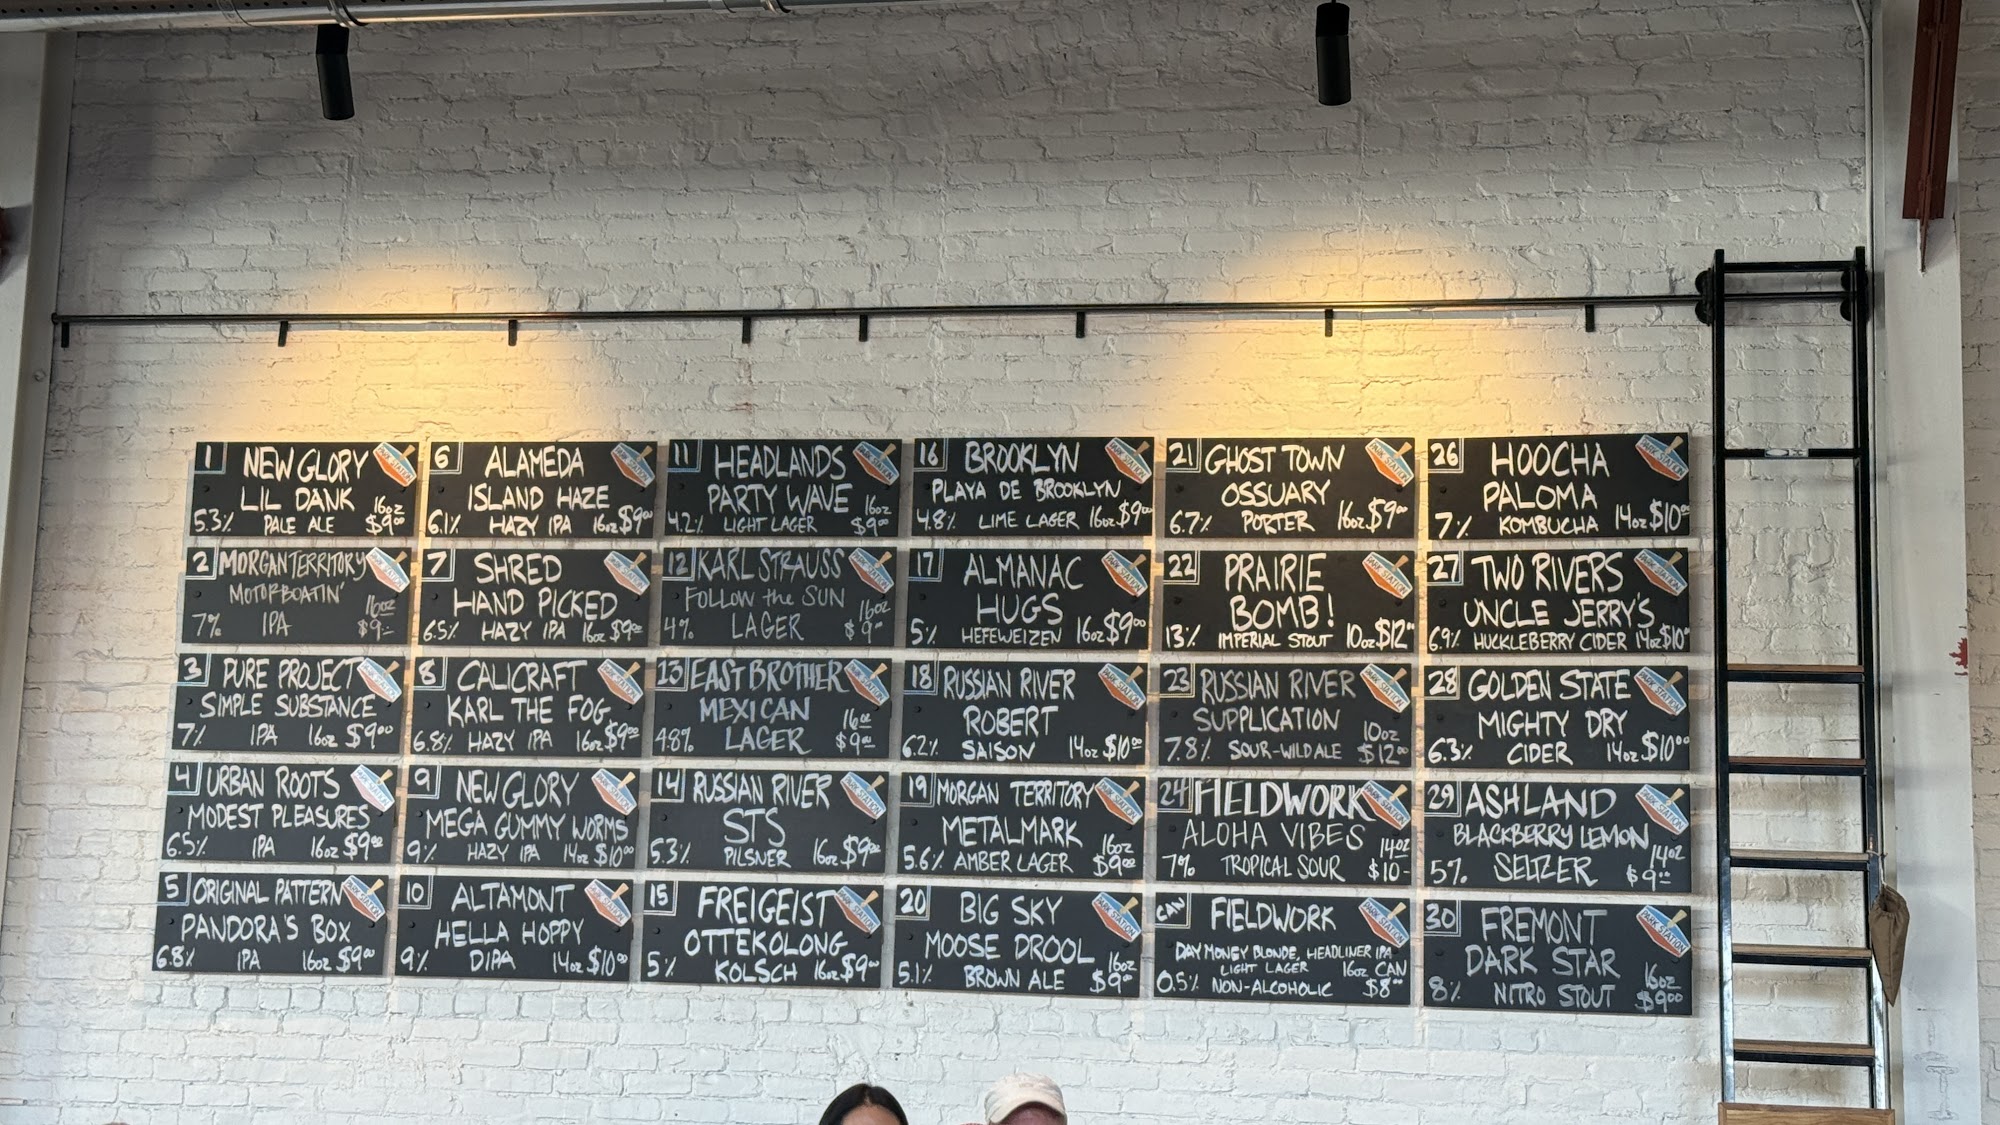 1 NEW GLORY
LIL DANK
5.3% PALE ALE 16oz $9.00
PARK STATION
2 MORGAN TERRITORY
MOTORBOATIN'
7% IPA 16oz $9.-
PARK STATION
3 PURE PROJECT
SIMPLE SUBSTANCE
7% IPA 16oz $9.00
PARK STATION
4 URBAN ROOTS
MODEST PLEASURES
6.5% IPA 16oz $9.00
PARK STATION
5 ORIGINAL PATTERN
PANDORA'S BOX
6.8% IPA 16oz $9.00
PARK STATION
6 ALAMEDA
ISLAND HAZE
6.1% HAZY IPA 16oz $9.00
PARK STATION
7 SHRED
HAND PICKED
6.5% HAZY IPA 16oz $9.00
PARK STATION
8 CALICRAFT
KARL THE FOG
6.8% HAZY IPA 16oz $9.00
PARK STATION
9 NEW GLORY
MEGA GUMMY WORMS
9% HAZY IPA 14oz $10.00
PARK STATION
10 ALTAMONT
HELLA HOPPY
9% DIPA 14oz $10.00
PARK STATION
11 HEADLANDS
PARTY WAVE
4.2% LIGHT LAGER 16oz $9.00
PARK STATION
12 KARL STRAUSS
FOLLOW the SUN
4% LAGER 16oz $9.00
PARK STATION
13 EAST BROTHER
MEXICAN
4.8% LAGER 16oz $9.00
PARK STATION
14 RUSSIAN RIVER
STS
5.3% PILSNER 16oz $9.00
PARK STATION
15 FREIGEIST
OTTEKOLONG
5% KOLSCH 16oz $9.00
PARK STATION
16 BROOKLYN
PLAYA DE BROOKLYN
4.8% LIME LAGER 16oz $9.00
PARK STATION
17 ALMANAC
HUGS
5% HEFEWEIZEN 16oz $9.00
PARK STATION
18 RUSSIAN RIVER
ROBERT
6.2% SAISON 14oz $10.00
PARK STATION
19 MORGAN TERRITORY
METALMARK
5.6% AMBER LAGER 16oz $9.00
PARK STATION
20 BIG SKY
MOOSE DROOL
5.1% BROWN ALE 16oz $9.00
PARK STATION
21 GHOST TOWN
OSSUARY
6.7% PORTER 16oz $9.00
PARK STATION
22 PRAIRIE
BOMB!
13% IMPERIAL STOUT 10oz $12.00
PARK STATION
23 RUSSIAN RIVER
SUPPLICATION
7.8% SOUR-WILD ALE 10oz $12.00
PARK STATION
24 FIELDWORK
ALOHA VIBES
7% TROPICAL SOUR 14oz $10-
PARK STATION
CAN FIELDWORK
DAY MONEY BLONDE, HEADLINER IPA
LIGHT LAGER 16oz CAN
0.5% NON-ALCOHOLIC $8.00
PARK STATION
26 HOOCHA
PALOMA
7% KOMBUCHA 14oz $10.00
PARK STATION
27 TWO RIVERS
UNCLE JERRY'S
6.9% HUCKLEBERRY CIDER 14oz $10.00
PARK STATION
28 GOLDEN STATE
MIGHTY DRY
6.3% CIDER 14oz $10.00
PARK STATION
29 ASHLAND
BLACKBERRY LEMON
5% SELTZER 14oz $9.00
PARK STATION
30 FREMONT
DARK STAR
8% NITRO STOUT 16oz $9.00
PARK STATION